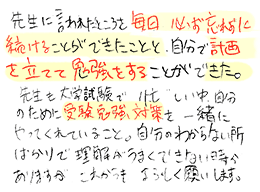 先生に言われたところを毎日 必ず忘れずに
続けることができたことと、自分で計画
を立てて勉強をすることができた。
先生も大学試験で 忙しい中 自分
のために受験勉強対策を一緒に
やってくれていること。自分のわからない所
ばかりで理解がうまくできない時が
ありますが これからも よろしく願いします。